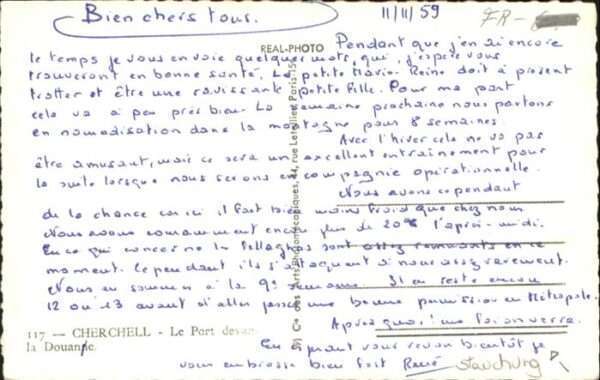 Bien chers tous.
11/11/59
REAL-PHOTO
Pendant que j'en ai encore
le temps je vous envoie quelques mots, qui, j'espère vous
trouveront en bonne santé, La petite Marie-Reine doit à présent
trotter et être une ravissante petite fille. Pour ma part
cela va à peu près bien. La semaine prochaine nous partons
en nomadisation dans la montagne pour 8 semaines.
Avec l'hiver cela ne va pas
être amusant, mais ce sera un excellent entraînement pour
la suite lorsque nous serons en compagnie opérationnelle.
Nous avons cependant
de la chance car ici il fait bien moins froid que chez nous
Nous avons couramment encore plus de 20° l'après-midi.
En ce qui concerne les Fellaghas sont assez remuants en ce
moment. Cependant ils s'attaquent à nous assez rarement.
Nous en sommes à la 9e semaine. Il en reste encore
12 ou 13 avant d'aller passer une bonne permission en Métropole.
Après quoi! me
117 — CHERCHELL - Le Port devant
la Douane.
En espérant vous revoir bientôt je
vous embrasse bien fort René
Cie des Arts Photomécaniques, 44, rue Letellier, Paris 15